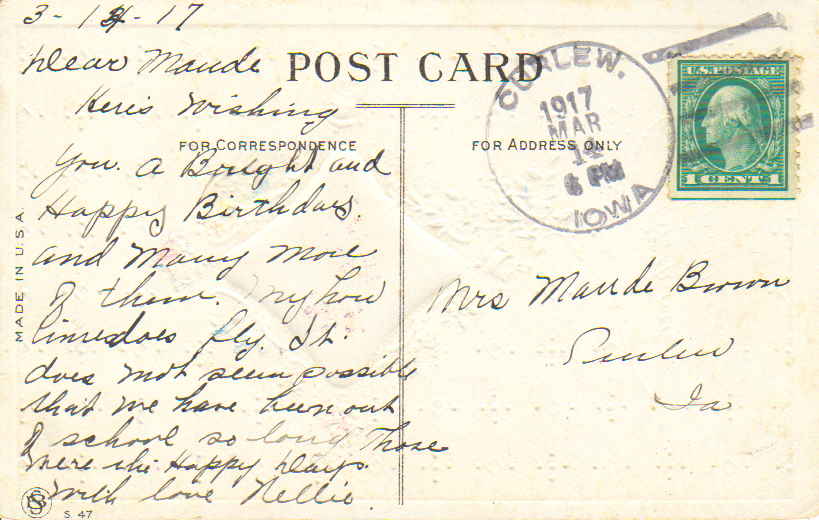 3-14-17
Dear Maude
POST CARD
Here's Wishing
FOR CORRESPONDENCE
You. A Bright and
Happy Birthday.
and Many More
of them. My how
time does fly. It
does not seem possible
that we have been out
of school so long Those
were the Happy Days.
With love Nellie.
MADE IN U.S.A.
S. 47
FOR ADDRESS ONLY
CURLEW.
1917
MAR
14
6 PM
IOWA
U.S. POSTAGE
1 CENT 1
Mrs Maude Brown
Curlew
Ia